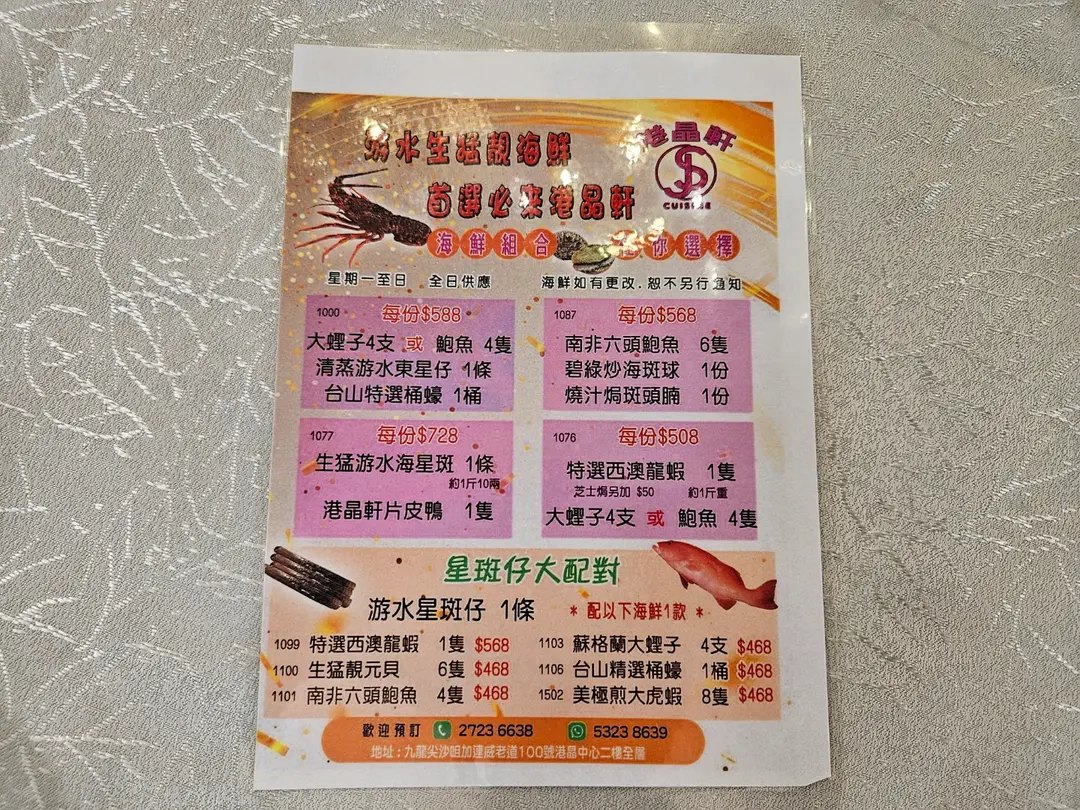 游水生猛靚海鮮
港晶軒
CUISINE
首選必來港晶軒
海鮮組合 任你選擇
星期一至日 全日供應 海鮮如有更改.恕不另行通知
1000 每份$588
大蟶子4支 或 鮑魚 4隻
清蒸游水東星仔 1條
台山特選桶蠔 1桶
1087 每份$568
南非六頭鮑魚 6隻
碧綠炒海斑球 1份
燒汁焗斑頭腩 1份
1077 每份$728
生猛游水海星斑 1條
約1斤10兩
港晶軒片皮鴨 1隻
1076 每份$508
特選西澳龍蝦 1隻
芝士焗另加 $50 約1斤重
大蟶子4支 或 鮑魚 4隻
星斑仔大配對
游水星斑仔 1條 * 配以下海鮮1款 *
1099 特選西澳龍蝦 1隻 $568
1100 生猛靚元貝 6隻 $468
1101 南非六頭鮑魚 4隻 $468
1103 蘇格蘭大蟶子 4支 $468
1106 台山精選桶蠔 1桶 $468
1502 美極煎大虎蝦 8隻 $468
歡迎預訂 2723 6638 5323 8639
地址:九龍尖沙咀加連威老道100號港晶中心二樓全層